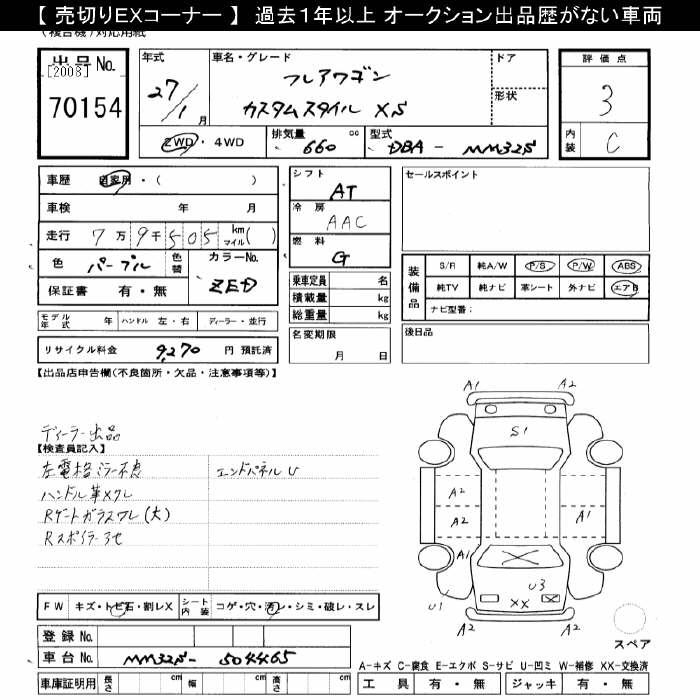 【 売切りEXコーナー 】 過去1年以上 オークション出品歴がない車両
(複合機)対応用紙
出品No.
[2008]
70154
年式
27/1月
車名・グレード
フレアワゴン
カスタムスタイル XS
ドア
形状
2WD・4WD
排気量 660 cc
型式 DBA - MM32S
評価点
3
内装 C
車歴 自家用・( )
車検 年 月
走行 7万9千505 km マイル( )
色 パープル 色替
カラーNo. ZED
保証書 有・無
シフト AT
冷房 AAC
燃料 G
乗車定員 名
積載量 kg
総重量 kg
名変期限
月 日
セールスポイント
装備品
S/R 純A/W P/S P/W ABS
純TV 純ナビ 革シート 外ナビ エアB
ナビ型番:
後日品
モデル年式 年 ハンドル 左・右 ディーラー・並行
リサイクル料金 9,270 円 預託済
【出品店申告欄(不良箇所・欠品・注意事項等)】
ディーラー出品
【検査員記入】
左電格ミラー不良
エンドパネル U
ハンドル革スレ
Rゲートガラスワレ(大)
Rスポイラー
A1 A2
S1
A2
A2 A1
A1
U3
U1 XX
A2 A2
スペア
FW キズ・トビ石・割レX
シート内装 コゲ・穴・汚レ・シミ・破レ・スレ
登録No.
車台No. MM32S- 504465
車庫証明用 長さ cm 幅 cm 高さ cm
A-キズ C-腐食 E-エクボ S-サビ U-凹ミ W-補修 XX-交換済
工具 有・無 ジャッキ 有・無